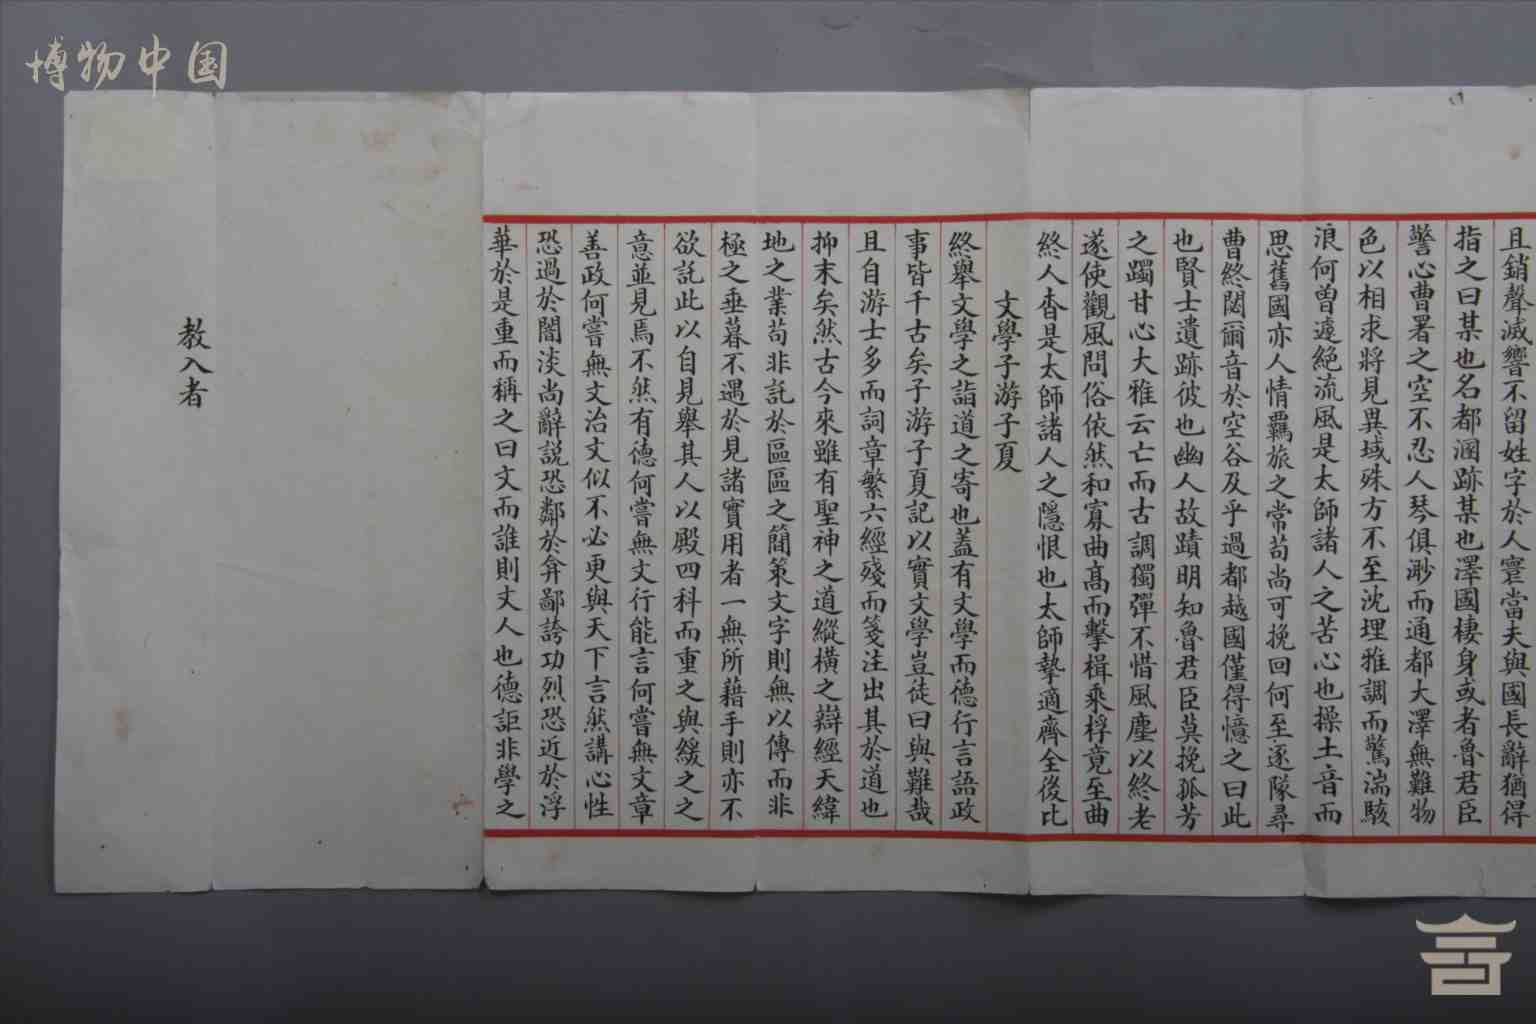 博物中国
且銷聲滅響不留姓字於人寰當夫與國長辭猶得
指之曰某也名都溷跡某也澤國棲身或者魯君臣
警心曹署之空不忍人琴俱渺而通都大澤無難物
色以相求將見異域殊方不至沈埋雅調而驚湍駭
浪何曾遽絕流風是太師諸人之苦心也操土音而
思舊國亦人情羈旅之常苟尚可挽回何至逐隊尋
曹終閟爾音於空谷及乎過都越國僅得憶之曰此
也賢士遺跡彼也幽人故蹟明知魯君臣莫挽孤芳
之躅甘心大雅云亡而古調獨彈不惜風塵以終老
遂使觀風問俗依然和寡曲高而擊楫乘桴竟至曲
終人杳是太師諸人之隱恨也太師摯適齊全後比
文學子游子夏
終舉文學之詣道之寄也蓋有文學而德行言語政
事皆千古矣子游子夏記以實文學豈徒曰與難哉
且自游士多而詞章繁六經殘而箋注出其於道也
抑末矣然古今來雖有聖神之道縱橫之辯經天緯
地之業苟非託於區區之簡策文字則無以傳而非
極之垂暮不遇於見諸實用者一無所藉手則亦不
欲託此以自見舉其人以殿四科而重之與緩之之
意並見焉不然有德何嘗無文行能言何嘗無文章
善政何嘗無文治文似不必更與天下言然講心性
恐過於闇淡尚辭說恐鄰於弇鄙誇功烈恐近於浮
華於是重而稱之曰文而誰則文人也德詎非學之
教入者